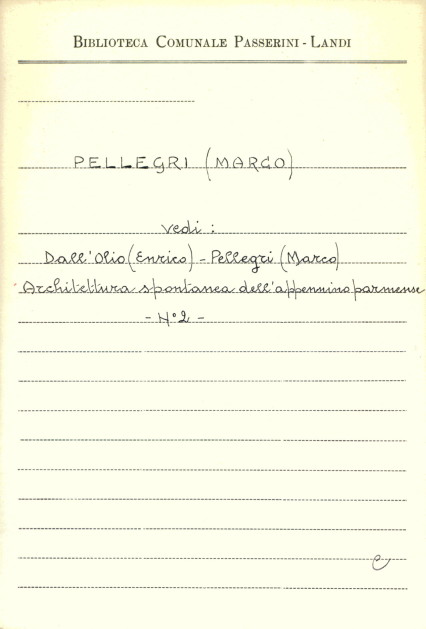 BIBLIOTECA COMUNALE PASSERINI - LANDI
PELLEGRI (MARCO)
vedi :
Dall'Olio (Enrico) - Pellegri (Marco)
Architettura spontanea dell'appennino parmense
- N° 2 -
e